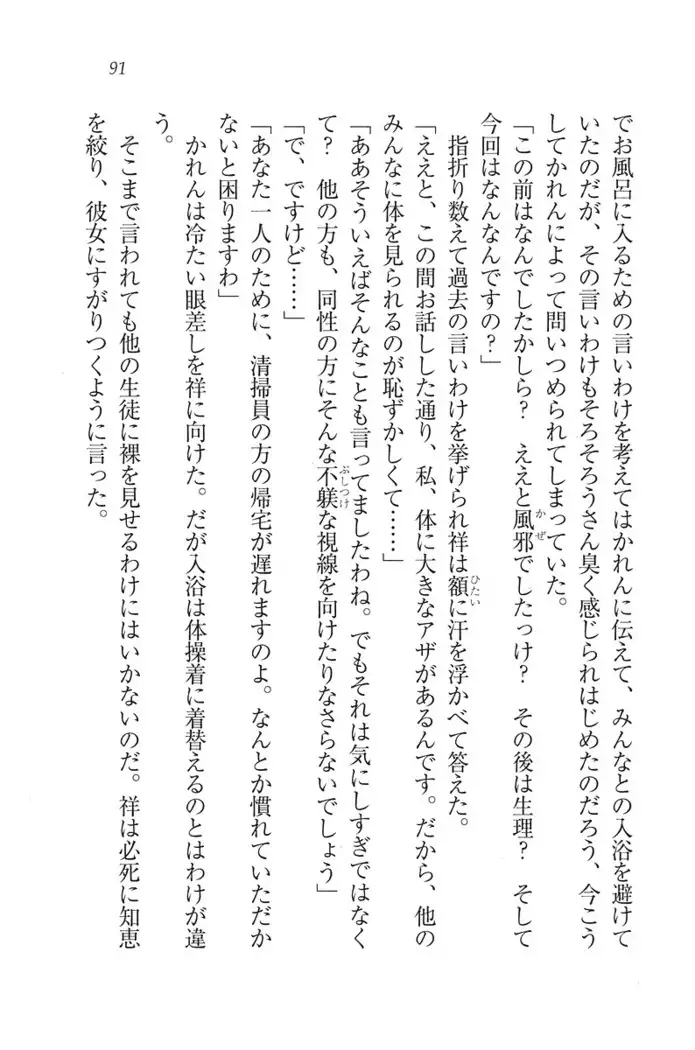 91
でお風呂に入るための言いわけを考えてはかれんに伝えて、みんなとの入浴を避けて
いたのだが、その言いわけもそろそろうさん臭く感じられはじめたのだろう、今こう
してかれんによって問いつめられてしまっていた。
「この前はなんでしたかしら？　ええと風邪でしたっけ？　その後は生理？　そして
今回はなんなんですの？」
指折り数えて過去の言いわけを挙げられ祥は額に汗を浮かべて答えた。
「ええと、この間お話しした通り、私、体に大きなアザがあるんです。だから、他の
みんなに体を見られるのが恥ずかしくて……」
「ああそういえばそんなことも言ってましたわね。でもそれは気にしすぎではなく
て？　他の方も、同性の方にそんな不躾な視線を向けたりなさらないでしょう」
「で、ですけど……」
「あなた一人のために、清掃員の方の帰宅が遅れますのよ。なんとか慣れていただか
ないと困りますわ」
かれんは冷たい眼差しを祥に向けた。だが入浴は体操着に着替えるのとはわけが違
う。
そこまで言われても他の生徒に裸を見せるわけにはいかないのだ。祥は必死に知恵
を絞り、彼女にすがりつくように言った。